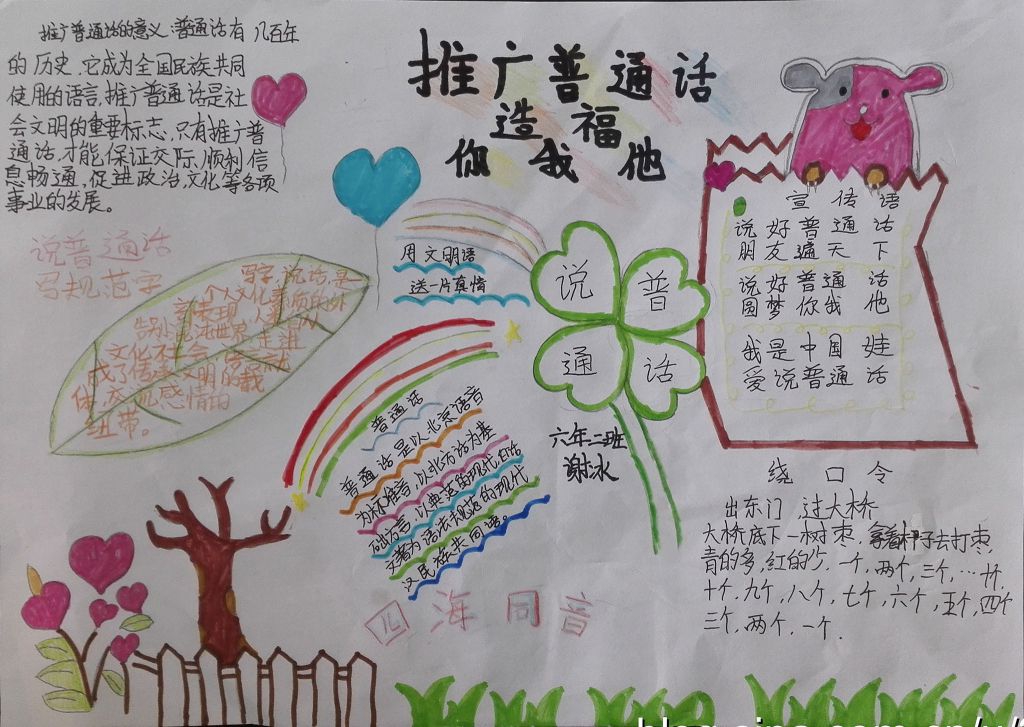 推广普通话的意义:普通话有几百年
的历史,它成为全国民族共同
使用的语言,推广普通话是社
会文明的重要标志,只有推广普
通话,才能保证交际,顺利信
息畅通,促进政治,文化等各项
事业的发展。
推广普通话
造福
你我他
说普通话
写规范字
写字,说话,是
个人文化素质的外
在表现
文化
成了传承文明的载
体,交流感情的
纽带。
用文明语
送一片真情
说普通话
六年二班
谢冰
普通话
普通话是以北京语音
为标准音,以北方话为基
础方言,以典范的现代白话
文著为语法规范的现代
汉民族共同语。
四海同音
宣传语
说好普通话
朋友遍天下
说好普通话
圆梦你我他
我是中国娃
爱说普通话
绕口令
出东门 过大桥
大桥底下一树枣,拿着杆子去打枣,
青的多,红的少,一个,两个,三个,…十个,
十个,九个,八个,七个,六个,五个,四个
三个,两个,一个.